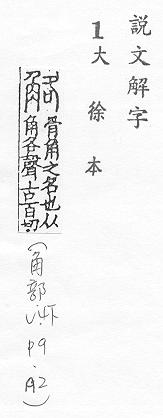 説文解字
1大徐本
觡骨角之名也从
角各聲古百切
(角部V.4下P9.A2)